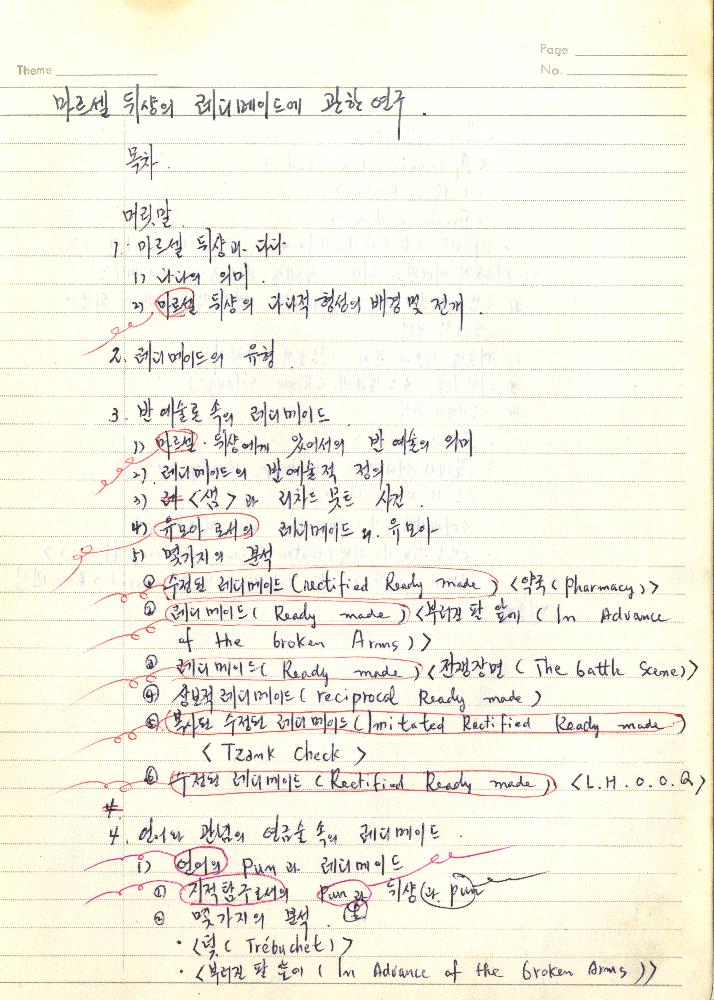 Page
Theme
No.
마르셀 뒤샹의 레디메이드에 관한 연구.
목차.
머릿말.
1. 마르셀 뒤샹과 다다
1) 다다의 의미.
2) 마르셀 뒤샹의 다다적 형성의 배경 및 전개.
2. 레디메이드의 유형.
3. 반 예술로 속의 레디메이드.
1) 마르셀·뒤샹에게 있어서의 반 예술의 의미
2) 레디메이드의 반예술적 정의
3) <샘>과 리차드 뭇트 사건.
4) 유모아로서의 레디메이드의 유모아
5) 몇가지의 분석
① 수정된 레디메이드(rectified Ready made) <약국(pharmacy)>
② 레디메이드(Ready made) <부러진 팔 앞에 (In Advance
of the broken Arms)>
③ 레디메이드(Ready made) <전쟁장면(The battle scene)>
④ 상보적 레디메이드(reciprocal Ready made)
⑤ 복사된 수정된 레디메이드(Imitated Rectified Ready made)
< Tzank Check >
⑥ 수정된 레디메이드(Rectified Ready made) <L.H.O.O.Q>
4. 언어와 관념의 연금술 속의 레디메이드.
1) 언어의 Pun과 레디메이드
① 지적탐구로서의 Pun과 뒤샹과 pun
② 몇가지의 분석.
· <덫(Trébuchet)>
· <부러진 팔 앞에 (In Advance of the broken Arms)>